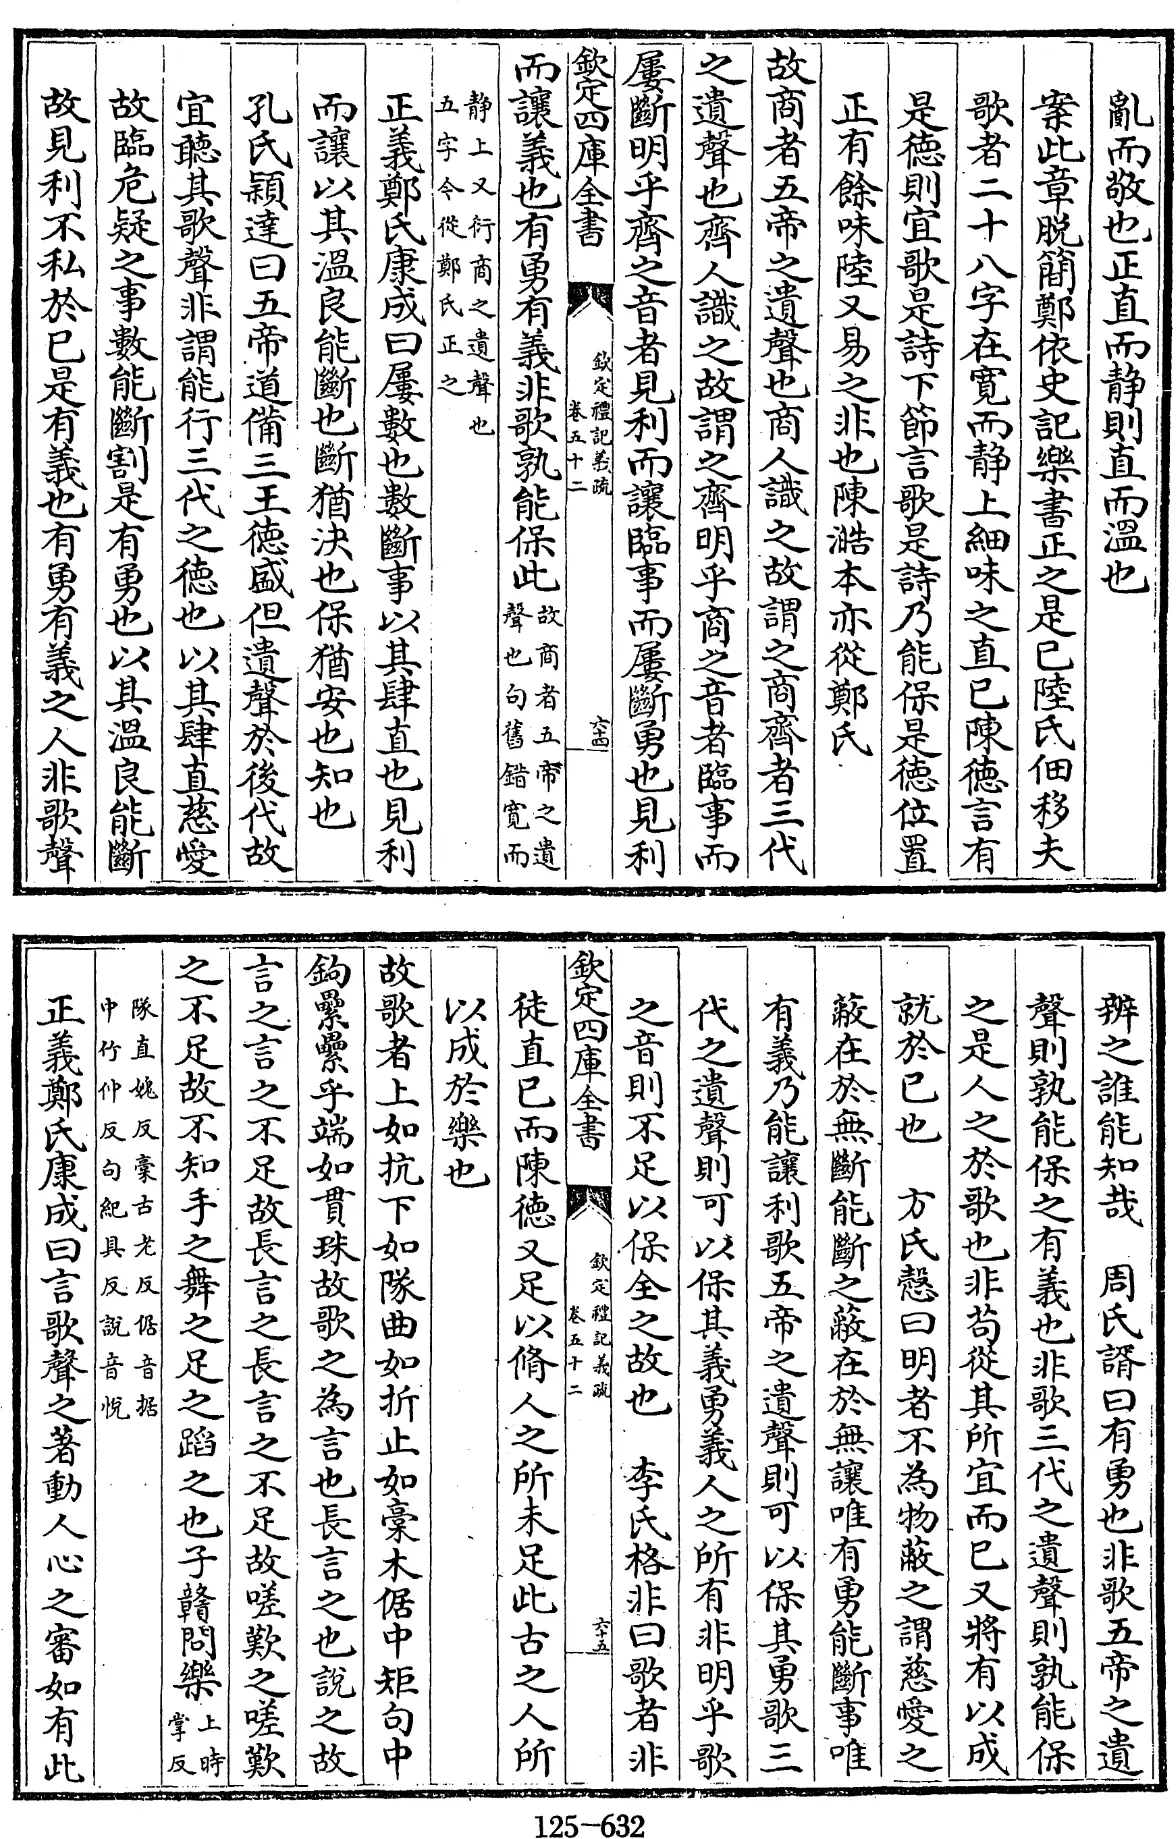 亂而敬也正直而静則直而溫也
案此章脱簡鄭依史記樂書正之是已陸氏佃移夫
歌者二十八字在寛而静上細味之直已陳徳言有
是徳則宜歌是詩下節言歌是詩乃能保是徳位置
正有餘味陸又易之非也陳澔本亦從鄭氏
故商者五帝之遺聲也商人識之故謂之商齊者三代
之遺聲也齊人識之故謂之齊明乎商之音者臨事而
屢斷明乎齊之音者見利而讓臨事而屢斷勇也見利
欽定四庫全書
欽定禮記義疏
卷五十二
六十四
而讓義也有勇有義非歌孰能保此
故商者五帝之遺
聲也句舊錯寛而
静上又衍商之遺聲也
五字今從鄭氏正之
正義鄭氏康成曰屢數也數斷事以其肆直也見利
而讓以其溫良能斷也斷猶決也保猶安也知也
孔氏穎達曰五帝道備三王徳盛但遺聲於後代故
宜聽其歌聲非謂能行三代之徳也以其肆直慈愛
故臨危疑之事數能斷割是有勇也以其溫良能斷
故見利不私於已是有義也有勇有義之人非歌聲
辨之誰能知哉　周氏諝曰有勇也非歌五帝之遺
聲則孰能保之有義也非歌三代之遺聲則孰能保
之是人之於歌也非茍從其所宜而已又將有以成
就於已也　方氏慤曰明者不為物蔽之謂慈愛之
蔽在於無斷能斷之蔽在於無讓唯有勇能斷事唯
有義乃能讓利歌五帝之遺聲則可以保其勇歌三
代之遺聲則可以保其義勇義人之所有非明乎歌
之音則不足以保全之故也　李氏格非曰歌者非
欽定四庫全書
欽定禮記義疏
卷五十二
六十五
徒直已而陳徳又足以脩人之所未足此古之人所
以成於樂也
故歌者上如抗下如隊曲如折止如槀木倨中矩句中
鉤纍纍乎端如貫珠故歌之為言也長言之也説之故
言之言之不足故長言之長言之不足故嗟歎之嗟歎
之不足故不知手之舞之足之蹈之也子贛問樂
上時
掌反
隊直媿反槀古老反倨音据
中竹仲反句紀具反説音悅
正義鄭氏康成曰言歌聲之著動人心之審如有此
125-632